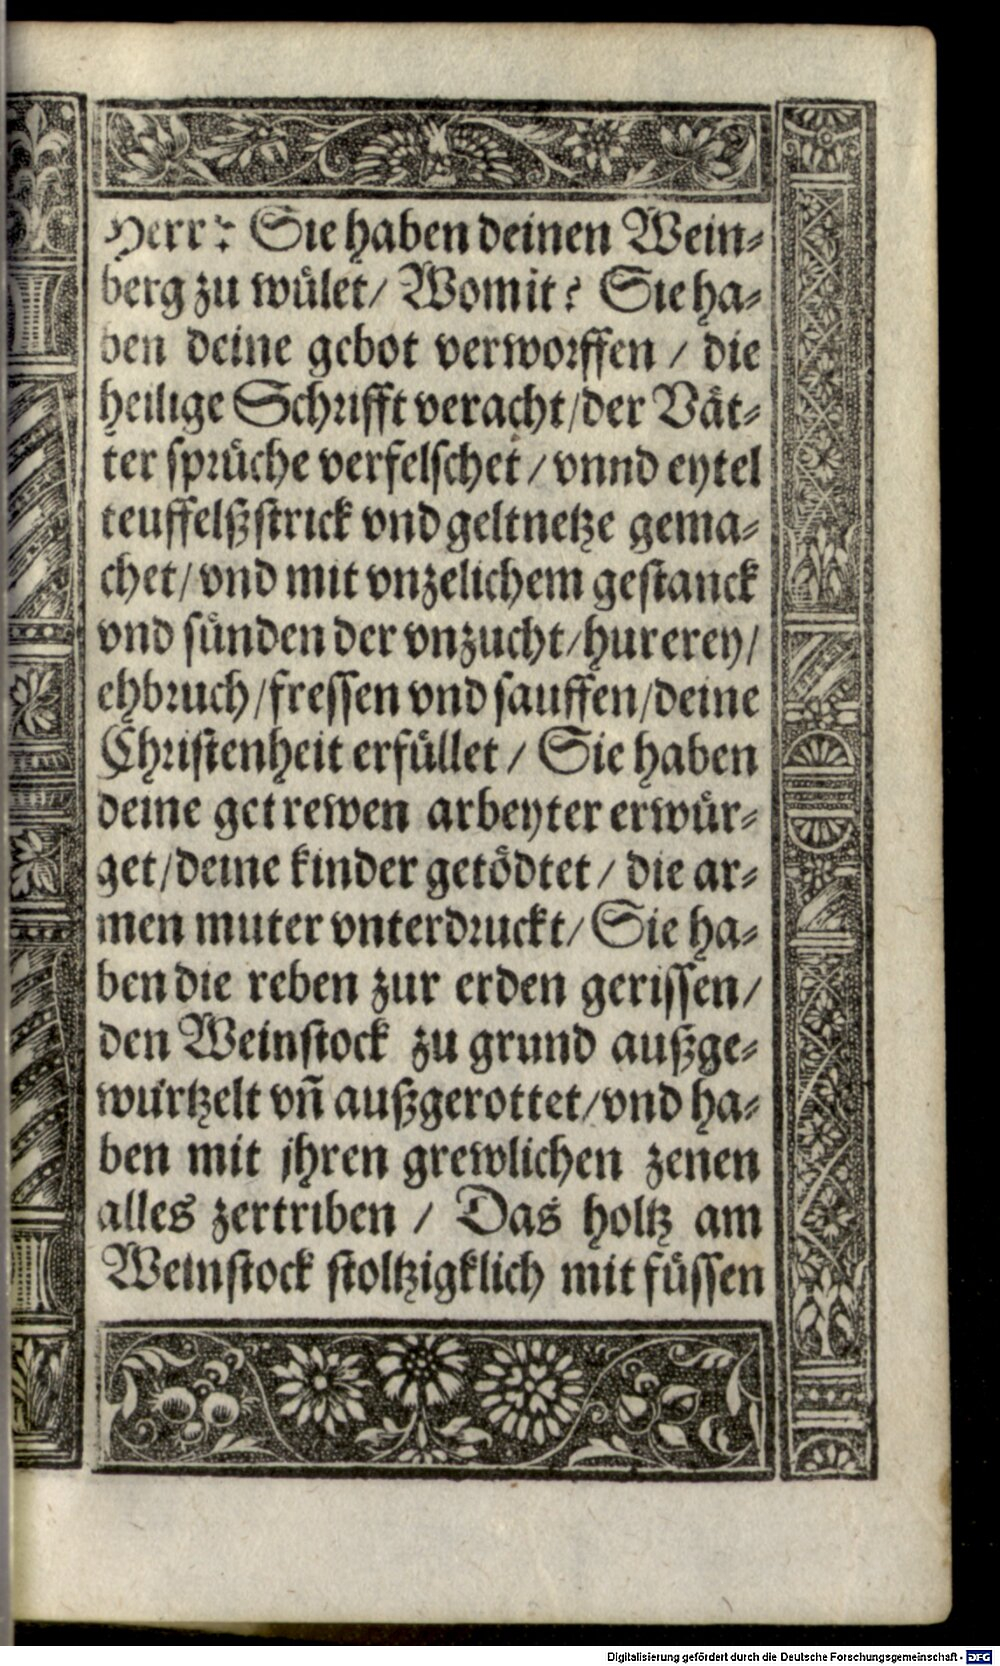 Herr? Sie haben deinen Wein⸗
berg zu wület/ Womit? Sie ha⸗
ben deine gebot verworffen / die
heilige Schrifft veracht/der Vät⸗
ter sprüche verfelschet / vnnd eytel
teuffelßstrick vnd geltnetze gema⸗
chet/ vnd mit vnzelichem gestanck
vnd sünden der vnzucht/hurerey/
ehbruch/fressen vnd sauffen/deine
Christenheit erfüllet / Sie haben
deine getrewen arbeyter erwür⸗
get/deine kinder getödtet / die ar⸗
men muter vnterdruckt/ Sie ha⸗
ben die reben zur erden gerissen/
den Weinstock zu grund außge⸗
würtzelt vñ außgerottet/vnd ha⸗
ben mit jhren grewlichen zenen
alles zertriben / Das holtz am
Weinstock stoltzigklich mit füssen
Digitalisierung gefördert durch die Deutsche Forschungsgemeinschaft - DFG